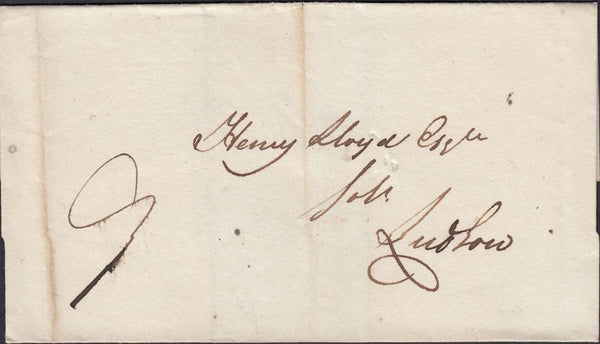 Henry Lloyd Esqre
Solr
Ludlow
9